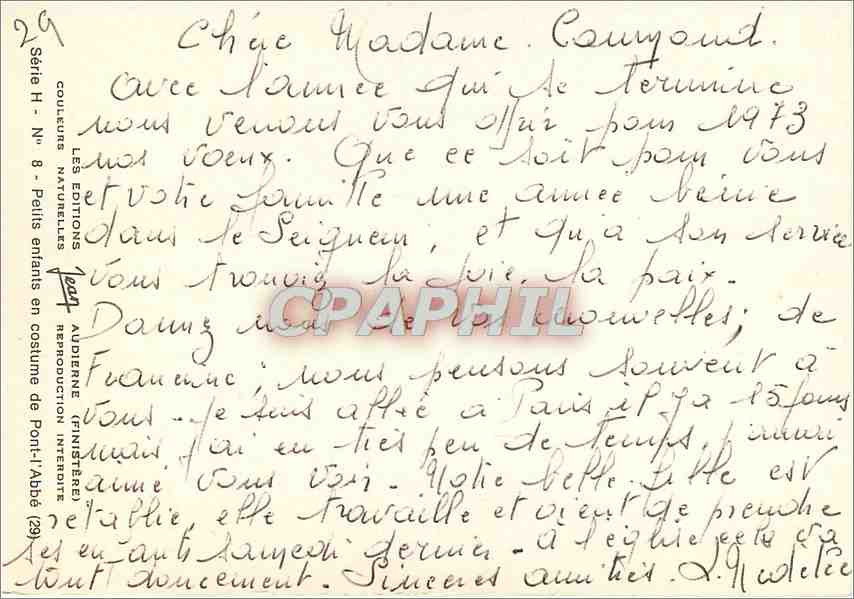 29
Chère Madame
avec l'année qui se termine
nous venons vous offrir pour 1973
nos voeux. Que ce soit pour vous
et votre famille une année bénie
dans le Seigneur, et qu'à son service
vous trouviez la joie, la paix.
Donnez nous de vos nouvelles; de
Francine; nous pensons souvent à
vous. Je suis allée à Paris il y a 15 jours
mais j'ai eu très peu de temps, j'aurai
aimé vous voir. Notre belle fille est
rétablie, elle travaille et vient de prendre
ses enfants samedi dernier - à l'église cela va
tout doucement. Sincères amitiés.
CPAPHIL
LES EDITIONS Jean AUDIERNE (FINISTÈRE)
COULEURS NATURELLES REPRODUCTION INTERDITE
Série H - N° 8 - Petits enfants en costume de Pont-l'Abbé (29)